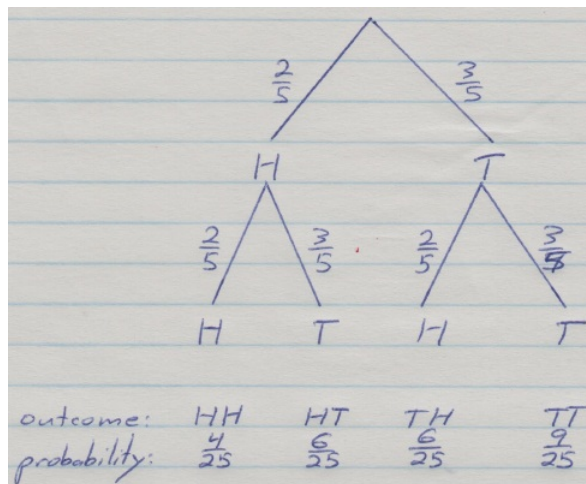 2/5 3/5
H T
2/5 3/5 2/5 3/5
H T H T
outcome: HH HT TH TT
probability: 4/25 6/25 6/25 9/25